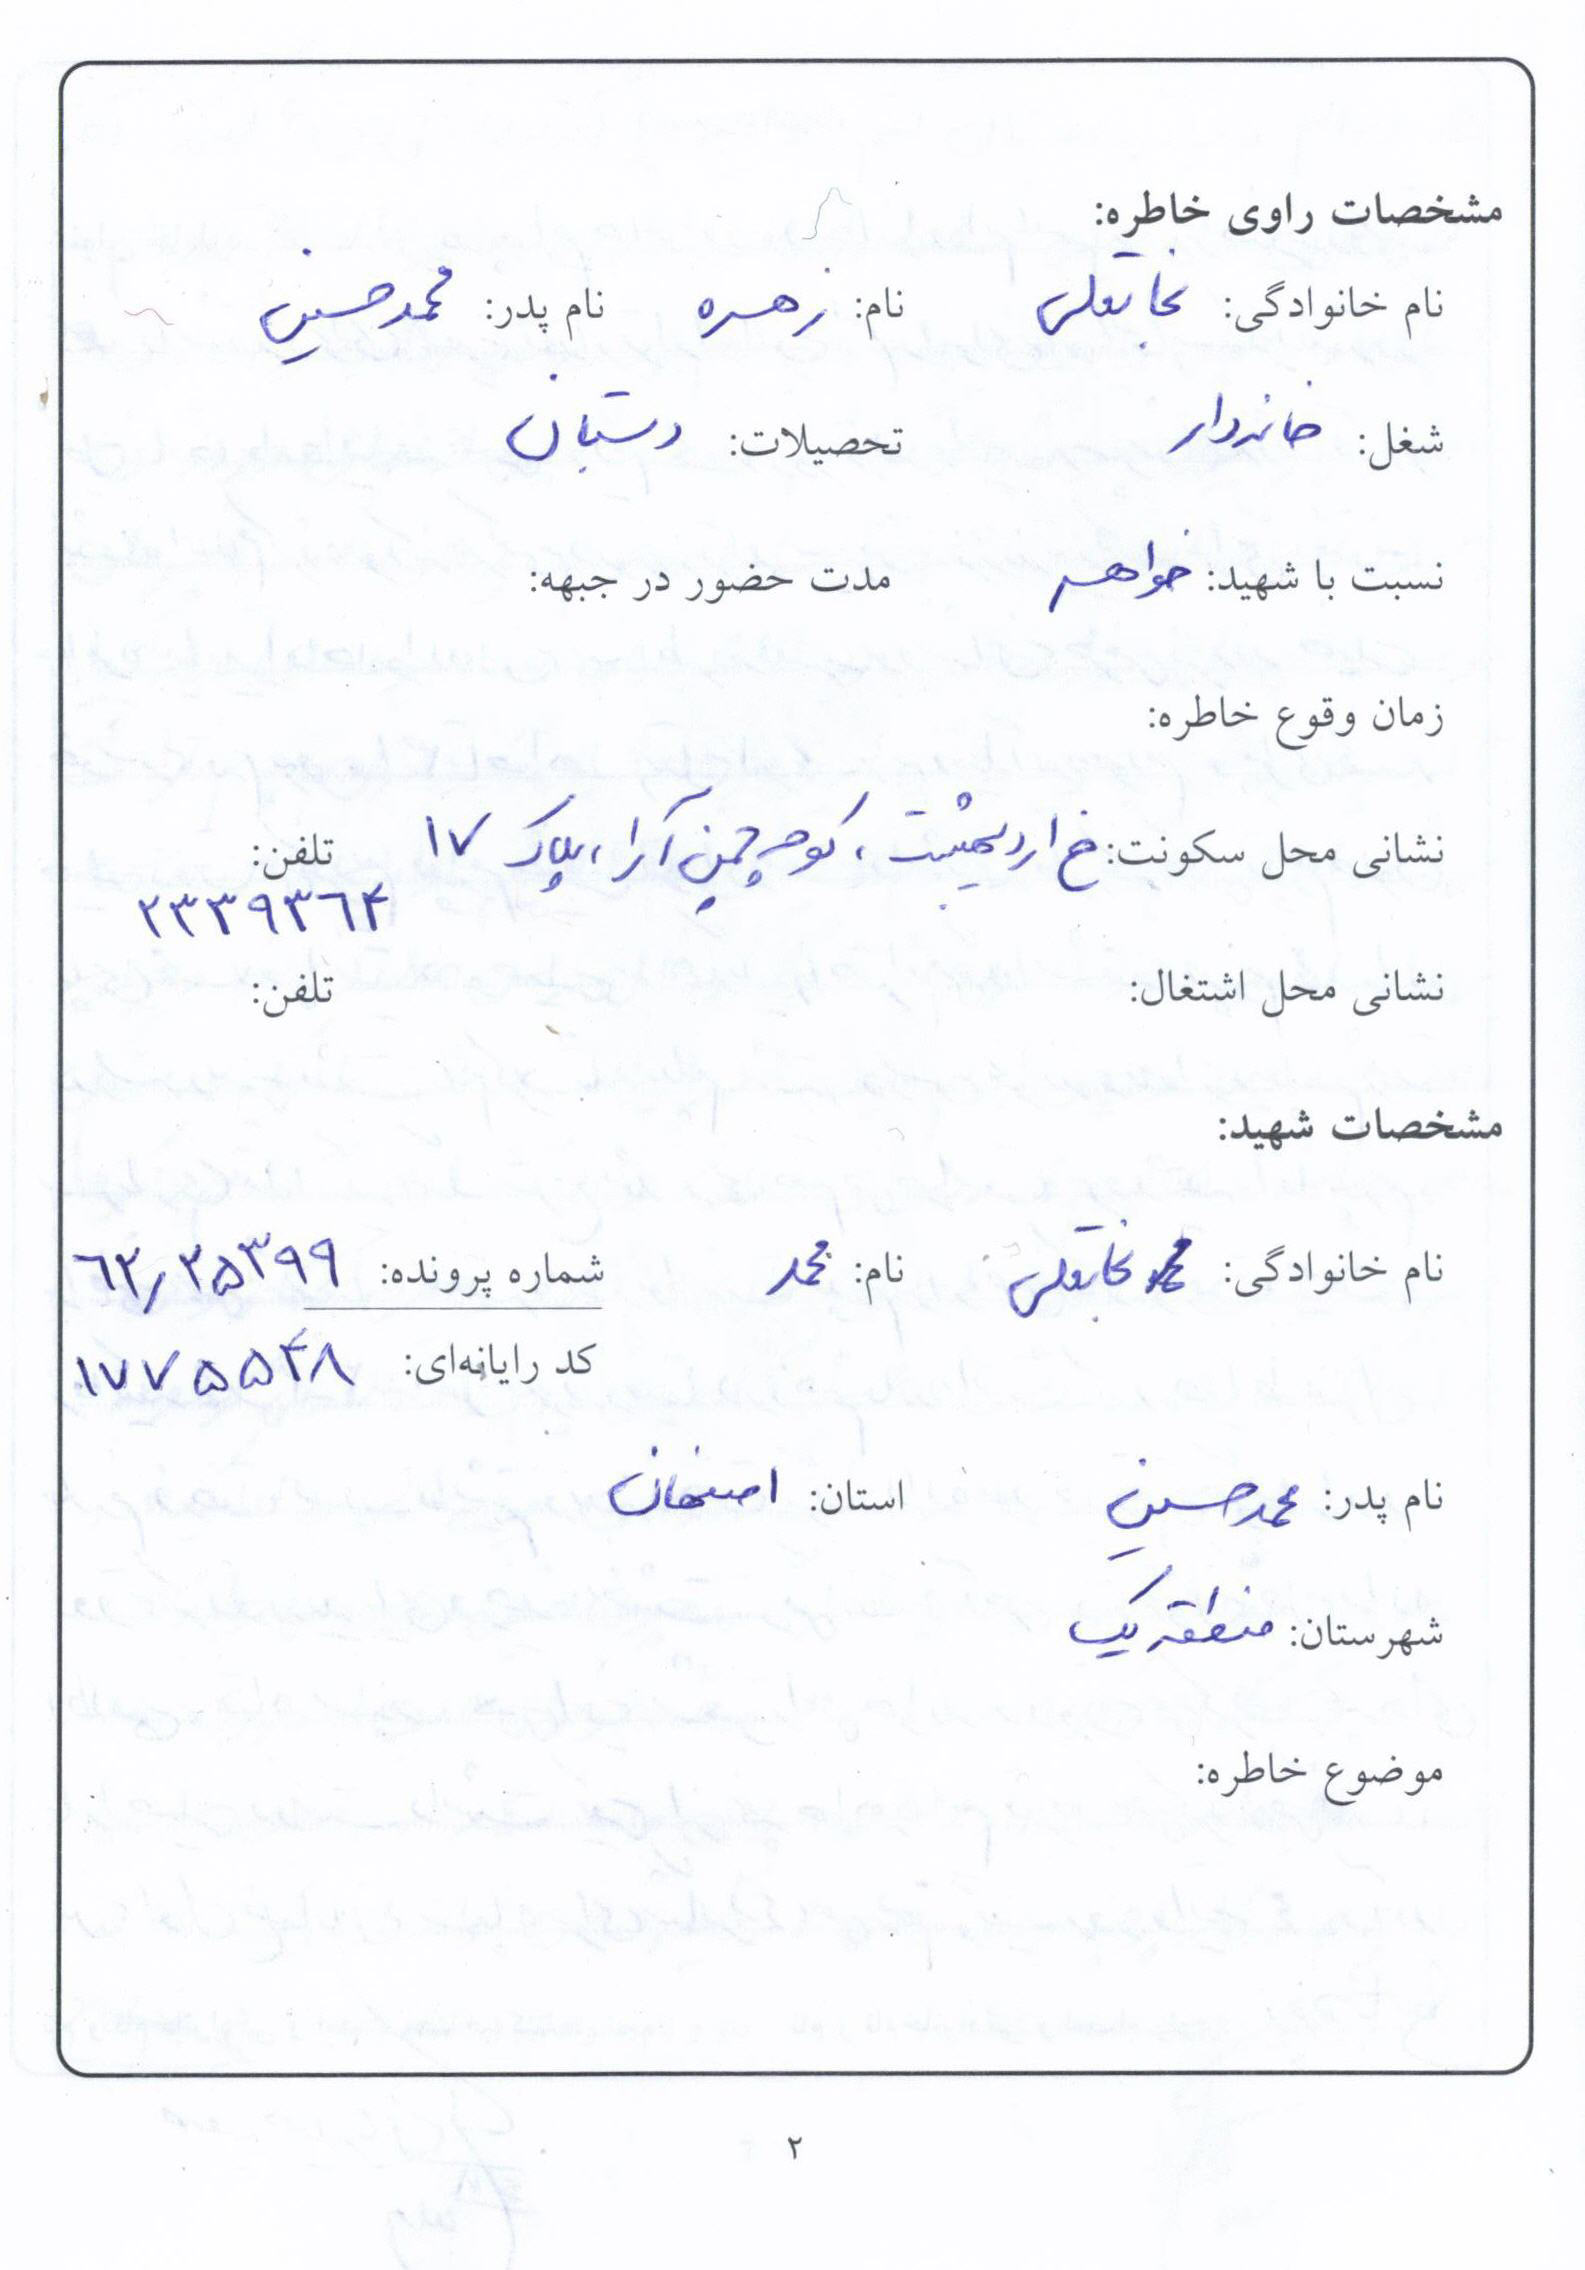 مشخصات راوی خاطره:
نام خانوادگی: نجاتعلی نام: زهره نام پدر: محمدحسین
شغل: خانه‌دار تحصیلات: دبستان
نسبت با شهید: خواهر مدت حضور در جبهه:
زمان وقوع خاطره:
نشانی محل سکونت: خ اردیبهشت، کوچه چمن آرا، پلاک ۱۷ تلفن:
۲۳۳۹۳۶۴
نشانی محل اشتغال: تلفن:
مشخصات شهید:
نام خانوادگی: نجاتعلی نام: محمد شماره پرونده: ۶۲٫۲۵۳۹۹
کد رایانه‌ای: ۱۷۷۵۵۴۸
نام پدر: محمدحسین استان: اصفهان
شهرستان: منطقه یک
موضوع خاطره:
۲